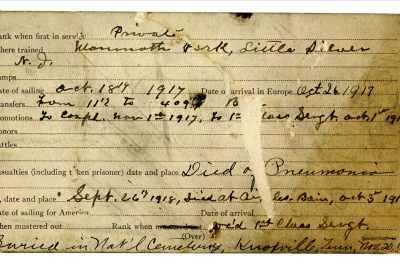 ank when first in service Private
here trained, Monmouth Park, Little Silver
N. J.
amps
ate of sailing Oct. 18th 1917 Date of arrival in Europe Oct 26 1917
ransfers From 11th to 409th B
romotions To Corpl. Nov 1st 1917, to 1st Class Sergt. Oct. 1st 191
onors
attles
asualties (including taken prisoner) date and place, Died of Pneumonia
, date and place Sept. 26th 1918, Died at Bain, Oct 5th 191
ate of sailing for America Date of arrival
hen mustered out Rank when 1st Class Sergt
(Over)
Buried in Nat'l Cemetery, Knoxville, Tenn, Nov. 20,